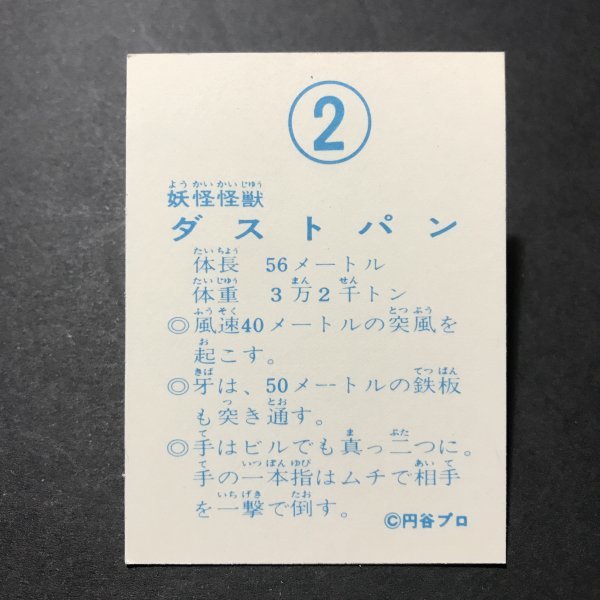 2
ようかいかいじゅう
妖怪怪獣
ダストパン
たいちょう
体長 56メートル
たいじゅう まん せん
体重 3万2千トン
ふうそく とっぷう
◎風速40メートルの突風を
お
起こす。
きば てっぱん
◎牙は、50メートルの鉄板
つ とお
も突き通す。
て ま ぷた
◎手はビルでも真っ二つに。
て いっぽんゆび あいて
手の一本指はムチで相手
いちげき たお
を一撃で倒す。
©円谷プロ